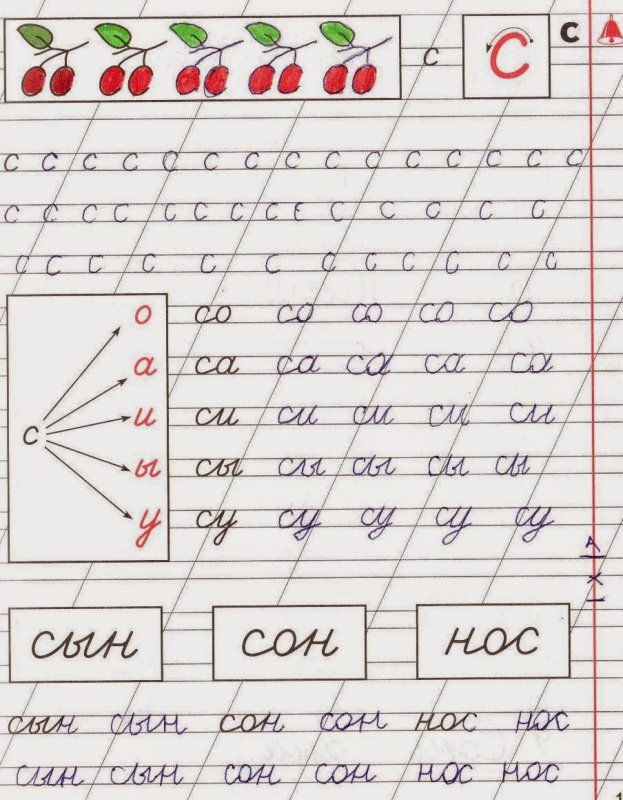 с С с
с с с с с с с с с с с с с с с
с с с с с с с с с с с с с с
с с с с с с с с с с с с
о со со со со со
а са са са са са
и си си си си си
с
ы сы сы сы сы сы
у су су су су су
сын сон нос
сын сын сон сон нос нос
сын сын сон сон нос нос